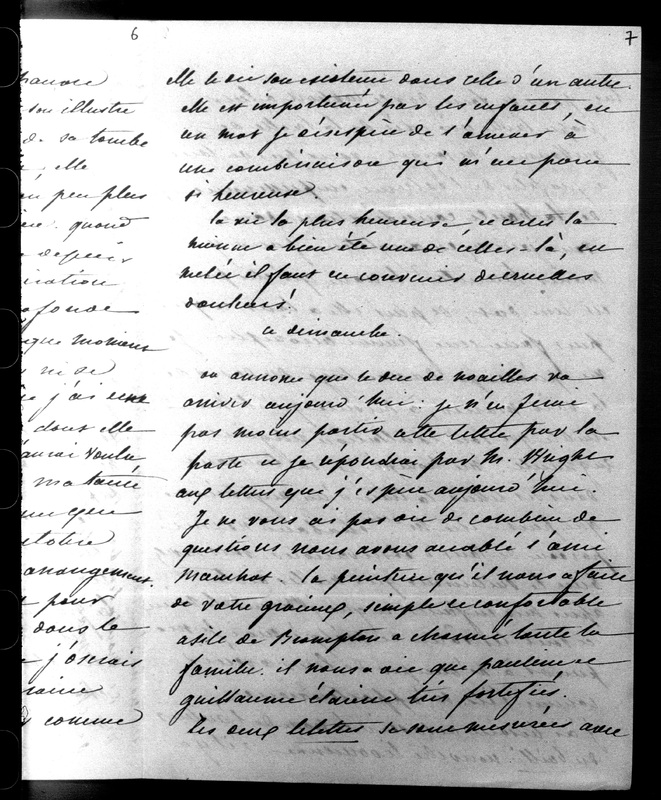 6
7
chance
son illustre
de sa tombe
, elle
un peu plus
quand
depuis
fonde
que moment
ni de
j'ai
dont elle
aurai voulu
ma tante
octobre
arrangement.
pour
dans le
j'oserais
comme
elle le dit son existence dans celle d'un autre.
elle est importunée par les enfants, en
un mot je désespère de l'amener à
une combinaison qui m'eut parue
si heureuse.
la vie la plus heureuse, et certes la
mienne a bien été une de celles-là, est
mêlée il faut en convenir de cruelles
douleurs!
ce dimanche.
on annonce que le duc de noailles va
arriver aujourd'hui. je n'en ferai
pas moins partir cette lettre par la
poste et je répondrai par Mr. Bright
aux lettres que j'espère aujourd'hui.
Je ne vous ai pas dit de combien de
questions nous avons accablé l'ami
Manchot. la peinture qu'il nous a faite
de votre gracieux, simple et confortable
asile de Brompton a charmé toute la
famille. il nous a dit que pauline et
guillaume étaient très fortifiés.
les deux letettes se sont mesurées avec